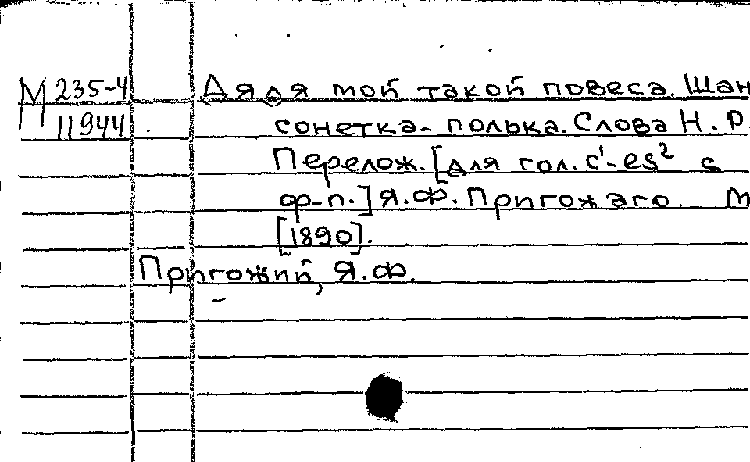 М 235-4 Дядя мой такой повеса. Шан
11944 сонетка-полька. Слова Н. Р.
Перелож. [для гол. c¹-es² с
ф-п.] Я.Ф. Пригожаго М
[1890].
Пригожий, Я.Ф.